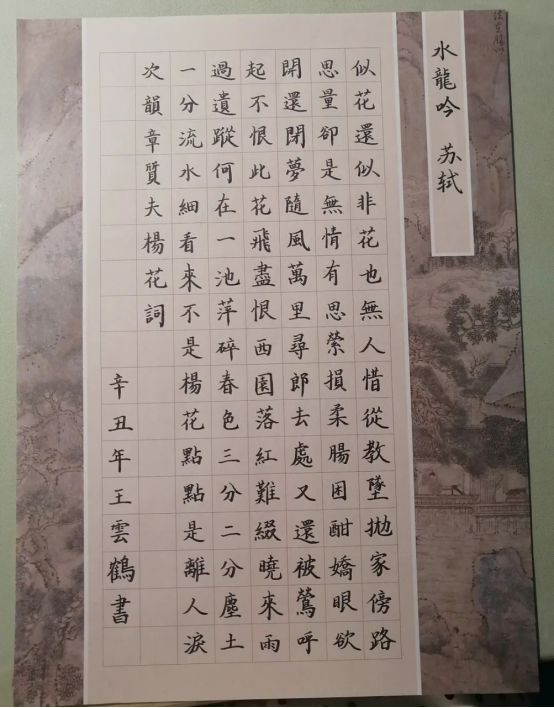 水龍吟 苏轼
似花還似非花也無人惜從教墜拋家傍路
思量卻是無情有思縈損柔腸困酣嬌眼欲
開還閉夢隨風萬里尋郎去處又還被鶯呼
起不恨此花飛盡恨西園落紅難綴曉來雨
過遺蹤何在一池萍碎春色三分二分塵土
一分流水細看來不是楊花點點是離人淚
次韻章質夫楊花詞
辛丑年王雲鶴書